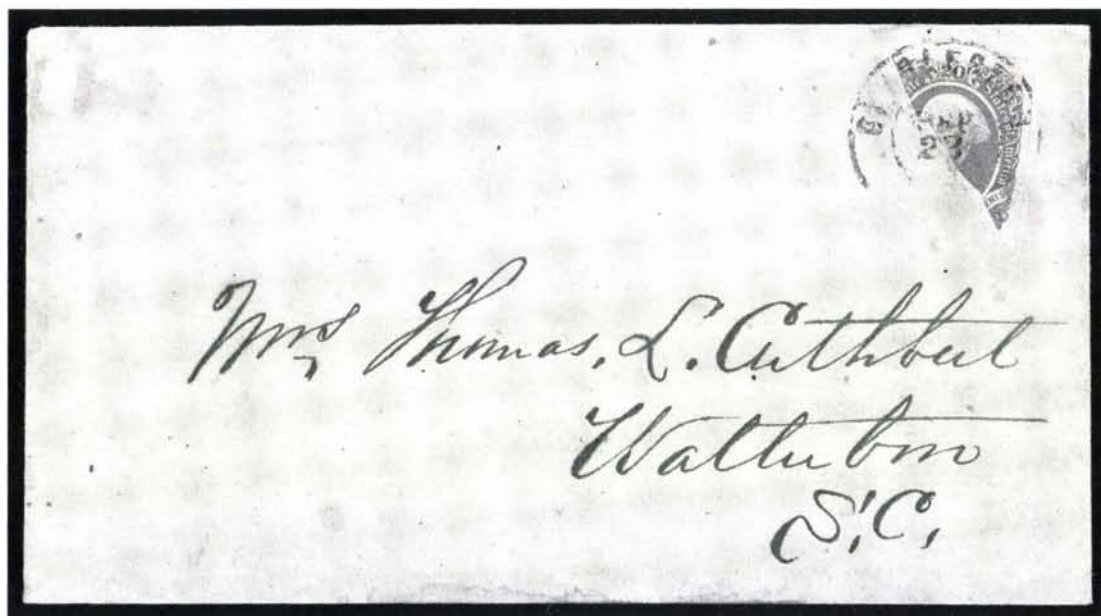 Mrs Thomas, L. Cuthbert
Walterboro
S.C.